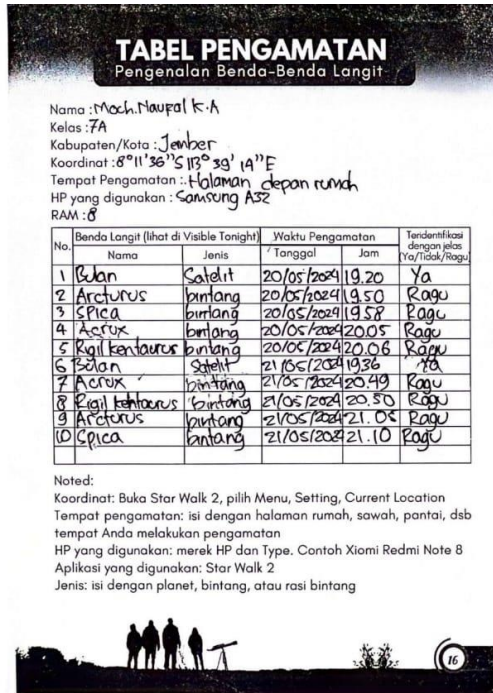 TABEL PENGAMATAN
Pengenalan Benda-Benda Langit
Nama : Moch. Naufal K.A
Kelas : 7A
Kabupaten/Kota : Jember
Koordinat : 8°11'36"S 113°39'14"E
Tempat Pengamatan : Halaman depan rumah
HP yang digunakan : Samsung A32
RAM : 8
No. Benda Langit (lihat di Visible Tonight) Waktu Pengamatan Teridentifikasi dengan jelas (Ya/Tidak/Ragu)
Nama Jenis Tanggal Jam
1 Bulan Satelit 20/05/2024 19.20 Ya
2 Arcturus bintang 20/05/2024 19.50 Ragu
3 Spica bintang 20/05/2024 19.58 Ragu
4 Acrux bintang 20/05/2024 20.05 Ragu
5 Rigil kentaurus bintang 20/05/2024 20.06 Ragu
6 Bulan Satelit 21/05/2024 19.36 Ya
7 Acrux bintang 21/05/2024 20.49 Ragu
8 Rigil kentaurus bintang 21/05/2024 20.50 Ragu
9 Arcturus bintang 21/05/2024 21.05 Ragu
10 Spica bintang 21/05/2024 21.10 Ragu
Noted:
Koordinat: Buka Star Walk 2, pilih Menu, Setting, Current Location
Tempat pengamatan: isi dengan halaman rumah, sawah, pantai, dsb
tempat Anda melakukan pengamatan
HP yang digunakan: merek HP dan Type. Contoh Xiomi Redmi Note 8
Aplikasi yang digunakan: Star Walk 2
Jenis: isi dengan planet, bintang, atau rasi bintang
16